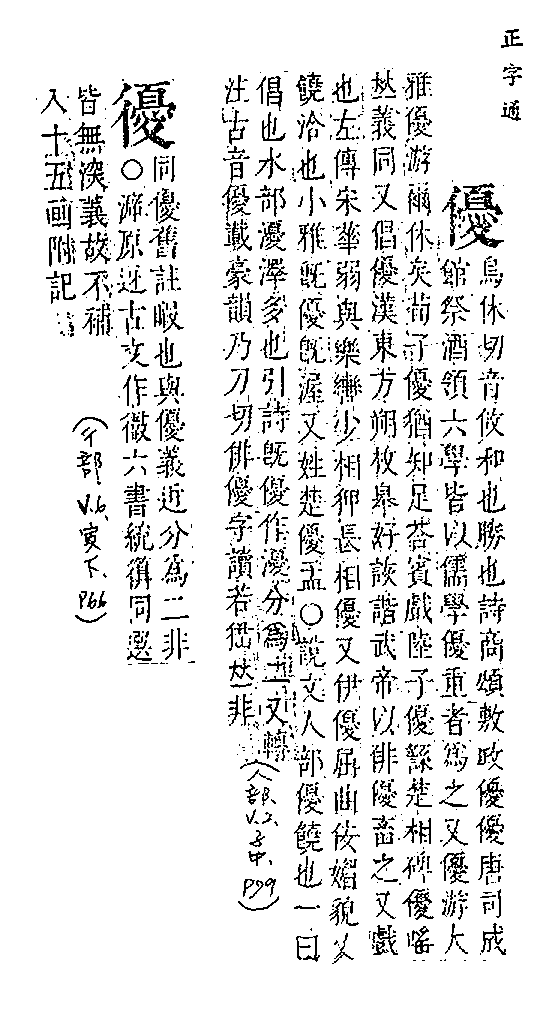 正字通
優
烏休切音攸和也勝也詩商頌敷政優優唐司成
館祭酒領六學皆以儒學優重者爲之又優游大
雅優游爾休矣荀子優猶知足荅賓戲陸子優繇楚相碑優
𡘋義同又倡優漢東方朔枚皋好詼諧武帝以俳優畜之又戲
也左傳宋華弱與樂轡少相狎長相優又伊優屈曲佞媚貌又
饒洽也小雅旣優旣渥又姓楚優孟○說文人部優饒也一曰
倡也水部瀀澤多也引詩旣優作瀀分爲二又轉
注古音優載豪韻乃刀切俳優字讀若𡘋非
(人部、V.2、子中、P99)
㥑
同優舊註暇也與優義近分爲二非
○游原迂古文作㣲六書統㣲同選
皆無深義故不補
入十五画附記
(彳部V.6、寅下、P66)